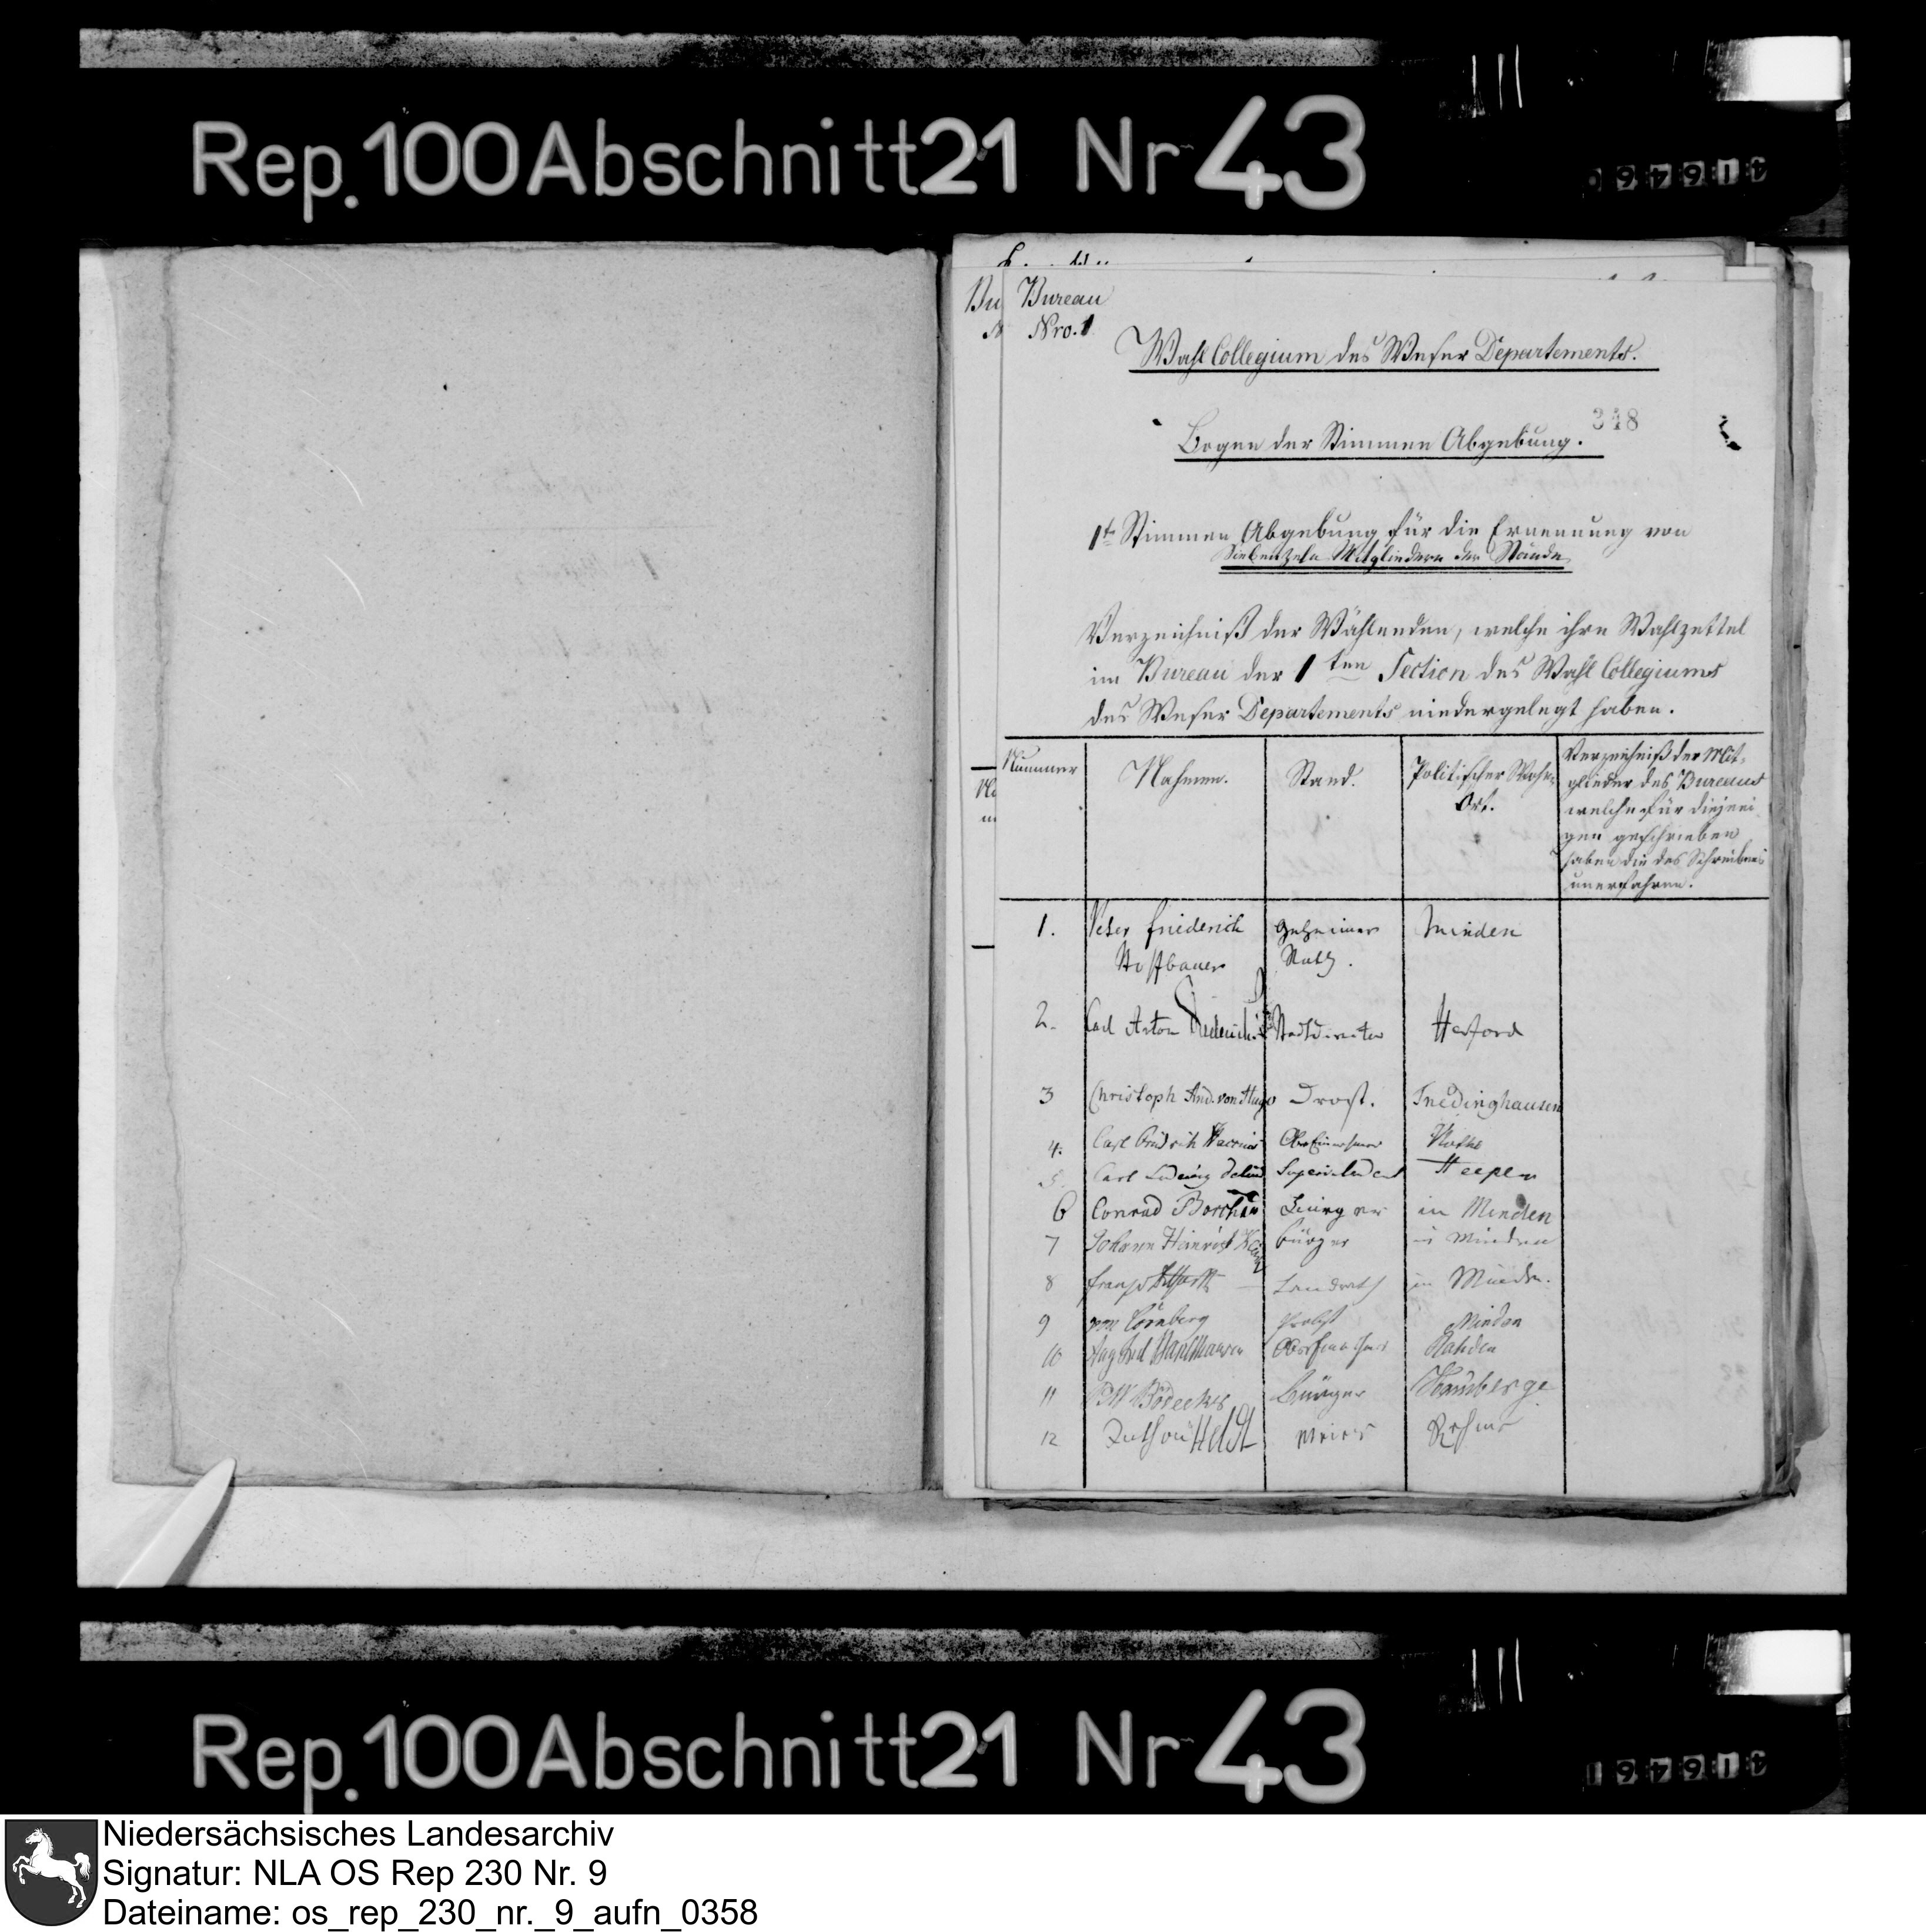 Rep.100Abschnitt21 Nr 43
Bureau
Nro. 1
Wahl Collegium des Weser Departements.
348
Bogen der Stimmen Abgebung.
1te Stimmen Abgebung für die Ernennung von
Siebenzehn Mitgliedern der Stände
Verzeichniß der Wählenden, welche ihre Wahlzettel
im Bureau der 1ten Section des Wahl Collegiums
des Weser Departements niedergelegt haben.
Nummer
Nahmen.
Stand.
Politischer Wohn-
Ort.
Verzeichniß der Mit-
glieder des Bureaus
welche für diejeni
gen geschrieben
haben die des Schreibens
unerfahren.
1. Peter Friederich Geheimer Minden
Rath.
2. Carl Anton Diederichs Stadtdirector Herford
3 Christoph And. von Hugo Drost. Friedinghausen
4. Carl
5. Carl Ludewig Superintendent Heepen
6 Conrad Bürger in Minden
7 Johann Heinrich Bürger in Minden
8 Franz Landrath in Minden.
9 von Minden
10 Rahden
11 Bödecker Bürger Hausberge
12 Meier Rehme
Rep.100Abschnitt21 Nr 43
Niedersächsisches Landesarchiv
Signatur: NLA OS Rep 230 Nr. 9
Dateiname: os_rep_230_nr._9_aufn_0358